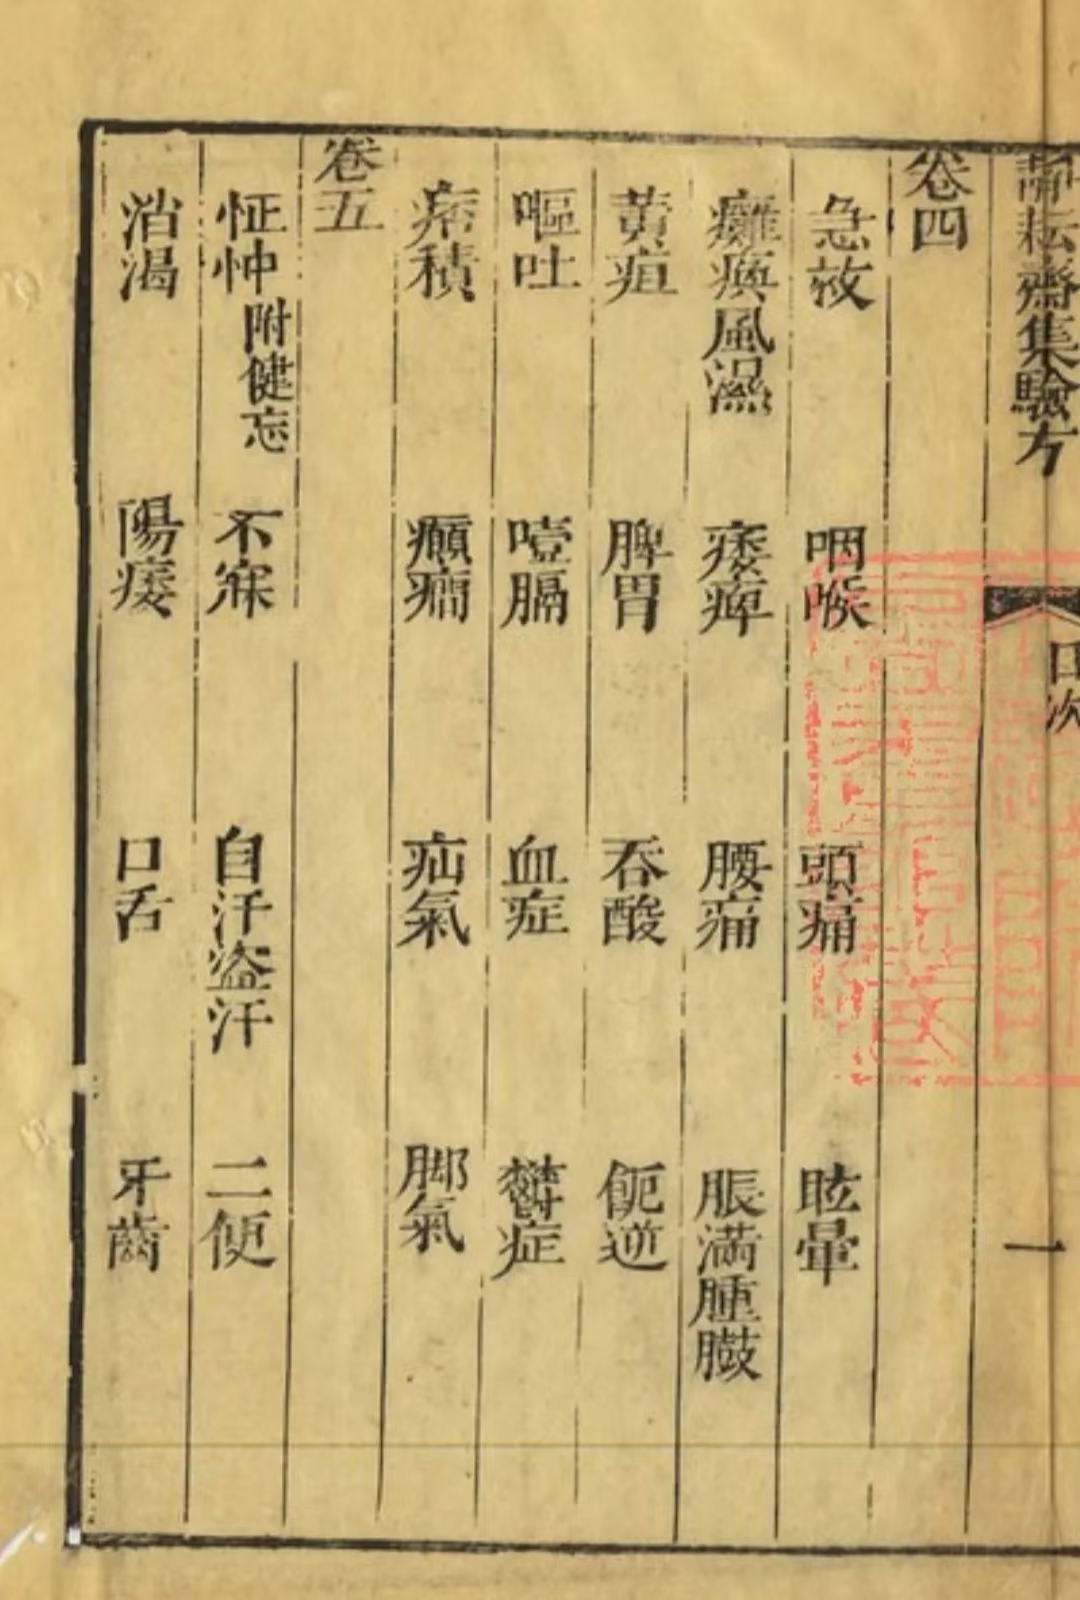 耘齋集驗方
目次
一
卷四
急救 咽喉 頭痛 眩暈
癱瘓風濕 痿痺 腰痛 脹滿腫臌
黄疸 脾胃 吞酸 呃逆
嘔吐 噎膈 血症 鬱症
痞積 癲癎 疝氣 脚氣
卷五
怔忡附健忘 不寐 自汗盜汗 二便
消渴 陽痿 口舌 牙齒